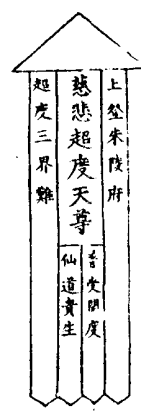 上登朱陵府
慈悲超度天尊
普受開度
仙道貴生
超度三界難